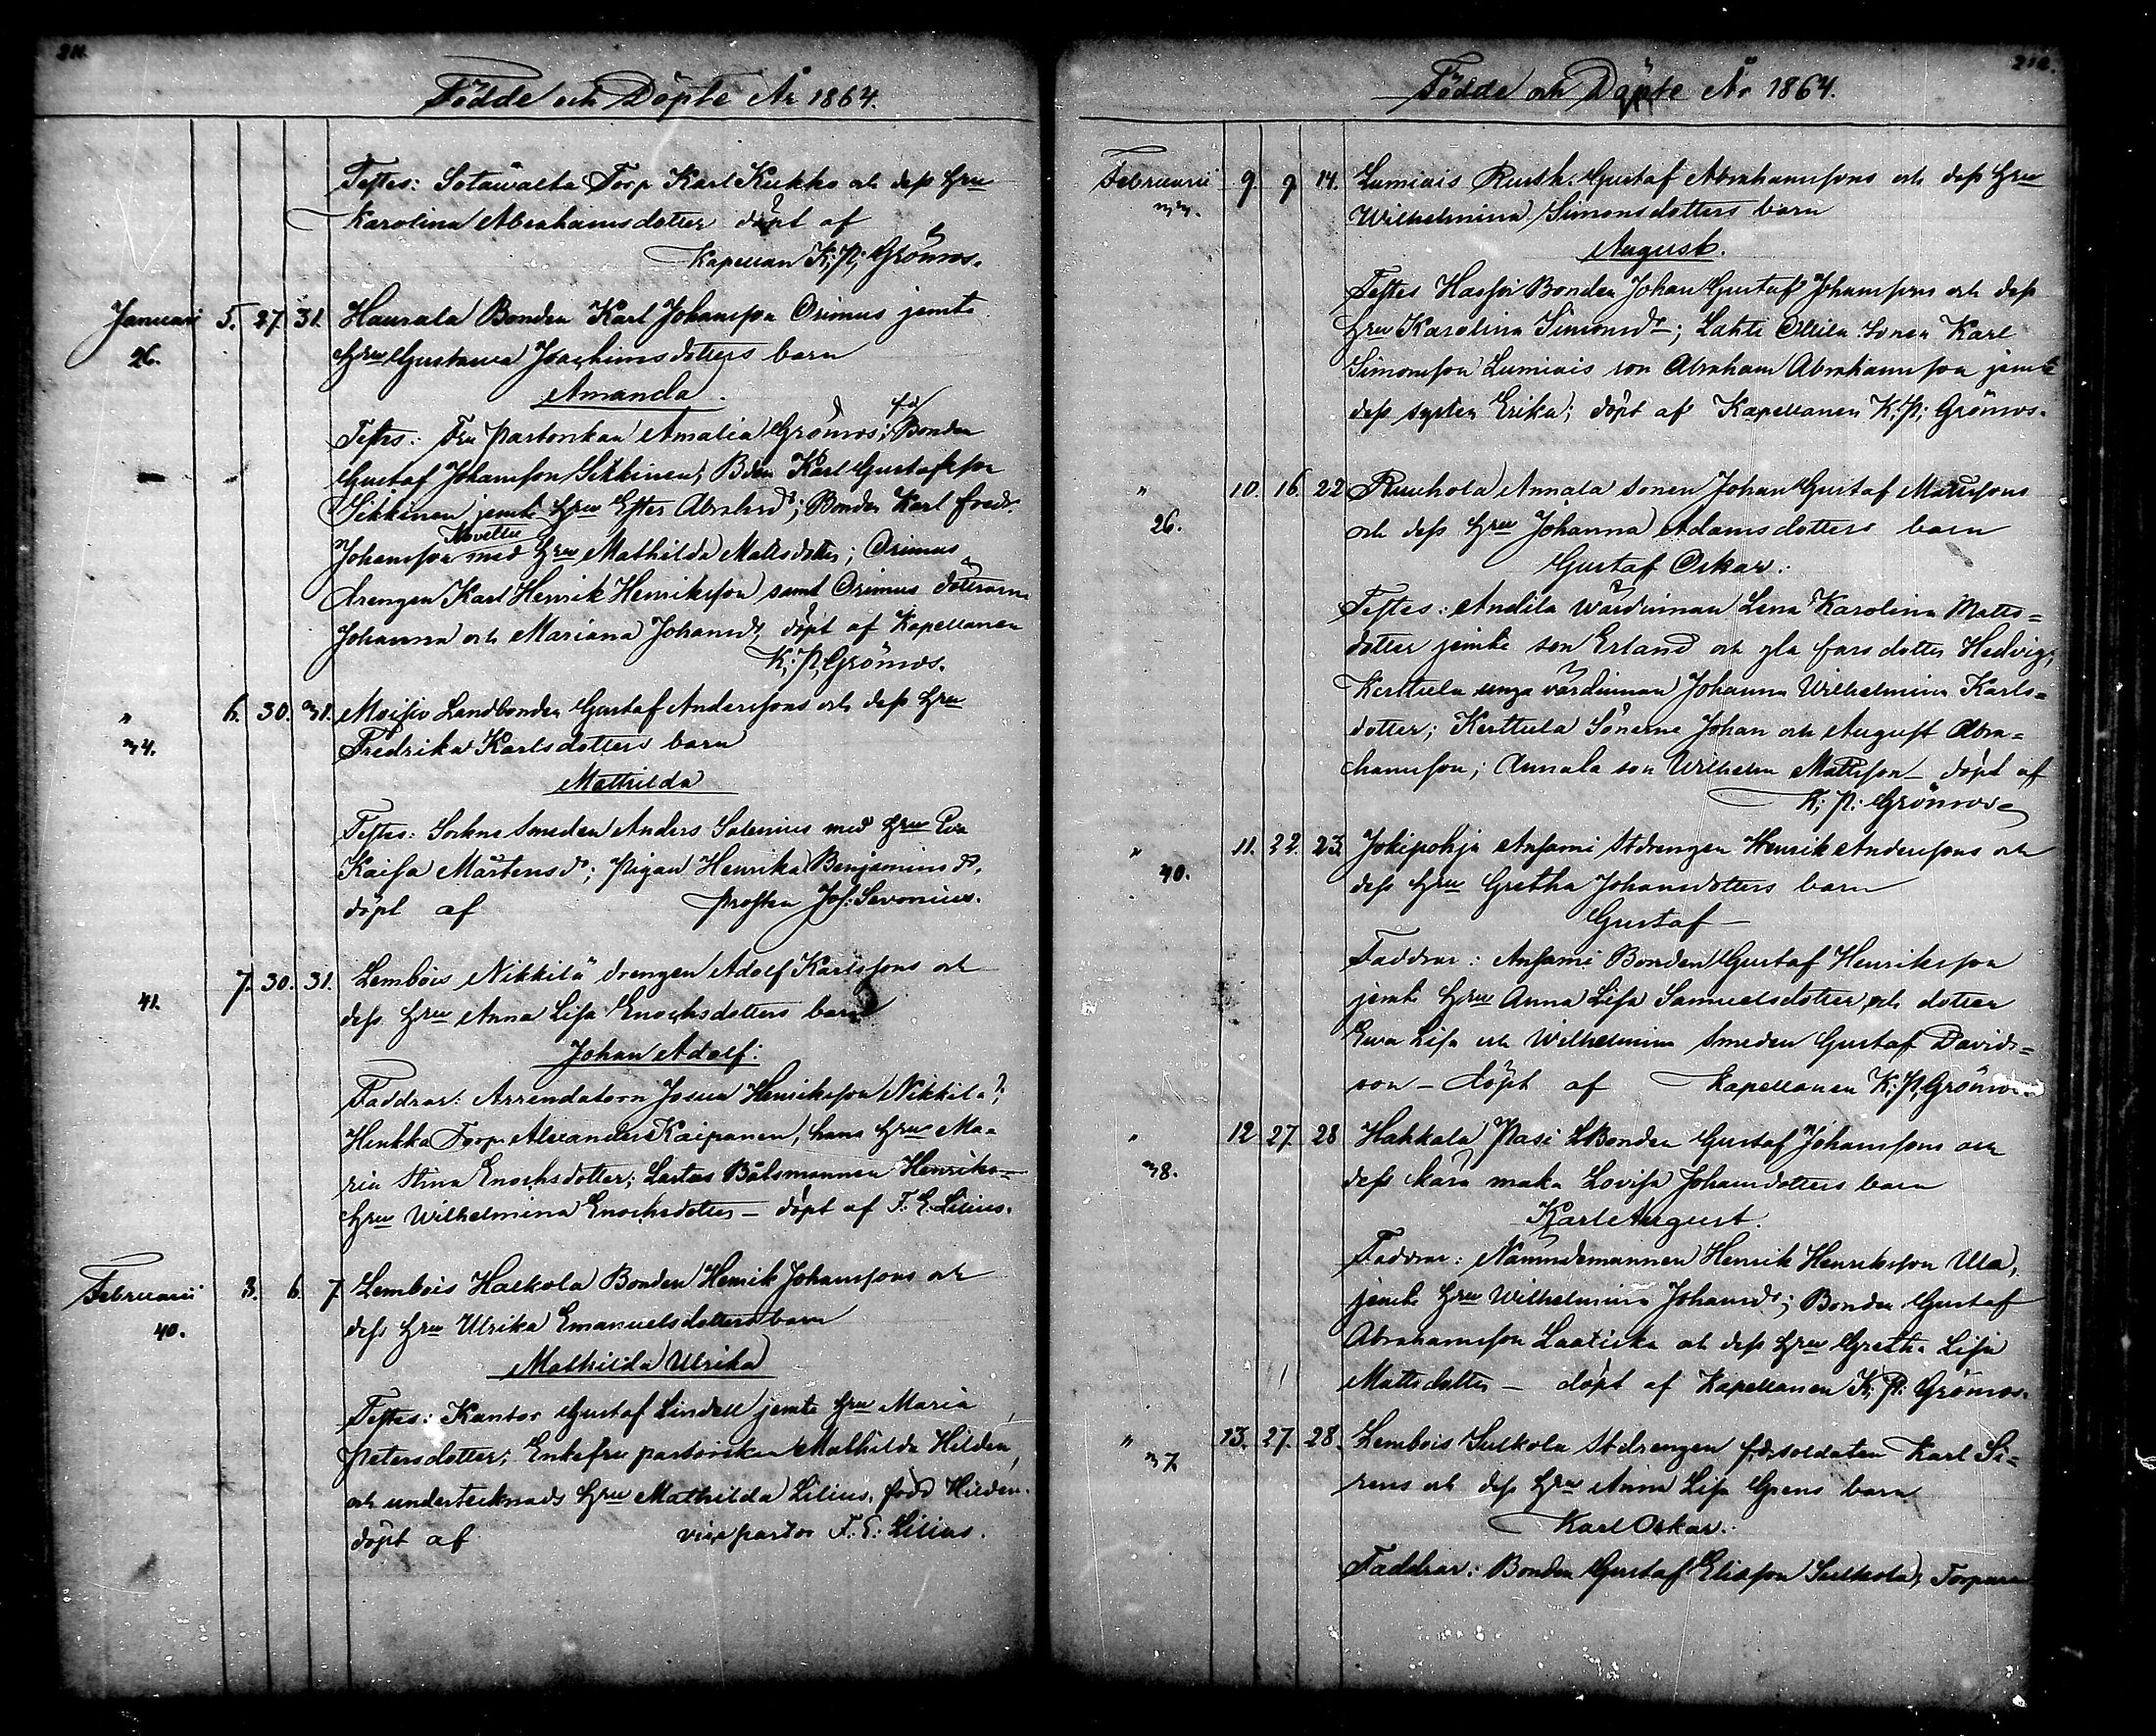 211.
Födde och Döpte År 1864.
Testes: Sotawalta Torp Karl Kukko och dess Hru
Karolina Abrahamsdotter döpt af
Kapellan K: P: Grönros.
Januari 5. 27. 31. Haurala Bonden Karl Johansson Orimus jemte
26. Hru Gustawa Joachimsdotters barn
Amanda.
Testes: Fru Pastorskan Amalia Grönros; fd Bonden
Gustaf Johansson Sikkinen; Bden Karl Gustafsson
Sikkinen jemte Hru Ester Abrahsdr; Bonden Karl Fredr.
Johansson med Hru Mathilda Matsdotter; Orimus
drengen Karl Henrik Henriksson samt Orimus döttrarne
Johanna och Mariana Johansdr, döpt af Kapellanen
K: P. Grönros.
" 6. 30. 31. Moisio Landbonden Gustaf Anderssons och dess Hru
34. Fredrika Karlsdotters barn
Mathilda
Testes: Sockne Smeden Anders Salenius med Hru Eva
Kaisa Mårtensdr; Pigan Henrika Benjaminsdr.
döpt af Prosten Jos: Savonius.
7. 30. 31. Lembois Nikkilä drengen Adolf Karlssons och
41. dess Hru Anna Lisa Enochsdotters barn
Johan Adolf.
Faddrar: Arrendatorn Josua Henriksson Nikkilä;
Henkka Torp. Alexander Kaipanen, hans Hru Ma-
ria Stina Enochsdotter; Båtsmannen Henriks
Hru Wilhelmina Enochsdotter – döpt af F. E. Lilius.
Februarii 8. 6. 7. Lembois Halkola Bonden Henrik Johanssons och
40. dess Hru Ulrika Emanuelsdotters barn
Mathilda Ulrika
Testes: Kantor Gustaf Lindell jemte Hru Maria
Petersdotter; Enkefru pastorskan Mathilda Hildén,
och undertecknads Hru Mathilda Lilius, född Hildén.
döpt af vice pastor F. E. Lilius.
212.
Födde och Döpte År 1864.
Februarii 9. 9. 14. Lumiais Rusth. Gustaf Abrahamssons och dess Hru
33. Wilhelmina Simonsdotters barn
August.
Testes Bonden Johan Gustaf Johansson och dess
Hru Karolina Simonsdr; Lahti Ollila Sonen Karl
Simonsson Lumiais son Abraham Abrahamsson jemte
dess syster Erika; döpt af Kapellanen K: P: Grönros.
" 10. 16. 22 Ruuhola Annala sonen Johan Gustaf Matssons
26. och dess Hru Johanna Adamsdotters barn
Gustaf Oskar.
Testes: Andila wärdinnan Lena Karolina Matts=
dotter jemte son Erland och gla fars dotter Hedvig;
Kerttula unga värdinnan Johanna Wilhelmina Karls=
dotter; Kerttula Sönerne Johan och August Abra=
hamsson; Annala son Wilhelm Mattsson – döpt af
K: P: Grönros
" 11. 22. 23. Jokipohja Anjami Stdrengen Henrik Anderssons och
40. dess Hru Gretha Johansdotters barn
Gustaf
Faddrar: Anjami Bonden Gustaf Henriksson
jemte Hru Anna Lisa Samuelsdotter, och dotter
Ewa Lisa och Wilhelmina Smeden Gustaf Davids=
son – döpt af Kapellanen K: P. Grönros.
" 12 27. 28 Hakkala Pasi LBonden Gustaf Johanssons och
38. dess kära maka Lovisa Johansdotters barn
Karl August.
Faddrar: Nämndemannen Henrik Henriksson Ula,
jemte Hru Wilhelmina Johansdr; Bonden Gustaf
Abrahamsson och dess Hru Gretha Lisa
Mattsdotter – döpt af Kapellanen K. P. Grönros.
" 13. 27. 28. Lembois Sulkola Stdrengen f.d. soldaten Karl Si=
37. rens och dess Hru Anna Lisa Grens barn
Karl Oskar.
Faddrar: Bonden Gustaf Eliasson Sulkola, Torparen